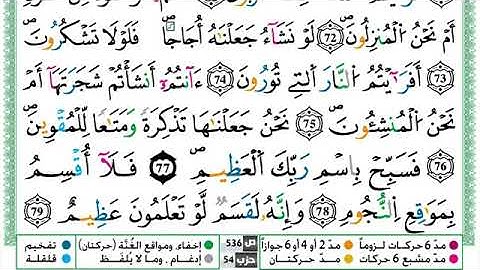 أَمْ نَحْنُ اُ۬لْمُنزِلُونَۖ 72 لَوْ نَشَآءُ جَعَلْنَٰهُ أُجَاجاٗ فَلَوْلَا تَشْكُرُونَۖ
73 أَفَرَٰٓيْتُمُ اُ۬لنَّارَ اَ۬لتِے تُورُونَ 74 ءَآنتُمُۥٓ أَنشَأْتُمْ شَجَرَتَهَآ أَمْ
نَحْنُ اُ۬لْمُنشِـُٔونَۖ 75 نَحْنُ جَعَلْنَٰهَا تَذْكِرَةٗ وَمَتَٰعاٗ لِّلْمُقْوِينَۖ
76 فَسَبِّحْ بِاسْمِ رَبِّكَ اَ۬لْعَظِيمِۖ 77 فَلَآ أُقْسِمُ
بِمَوَٰقِعِ اِ۬لنُّجُومِ 78 وَإِنَّهُۥ لَقَسَمٞ لَّوْ تَعْلَمُونَ عَظِيمٌ 79
مدّ 6 حركات لزوماً مدّ 2 أو 4 أو 6 جوازاً ص 536 إخفاء، ومواقع الغُنَّة (حركتان) تفخيم
مدّ مشبع 6 حركات مدّ حركتان حزب 54 إدغام، وما لا يُلفَظ قلقلة